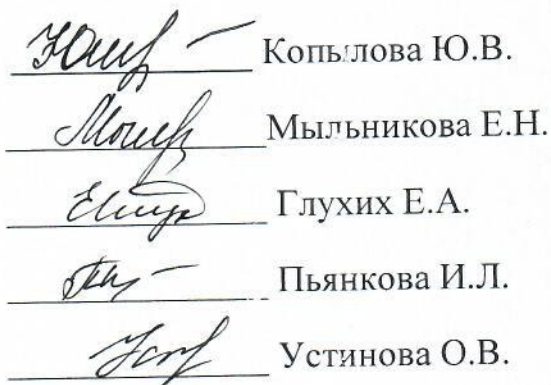 Копылова Ю.В.
Мыльникова Е.Н.
Глухих Е.А.
Пьянкова И.Л.
Устинова О.В.